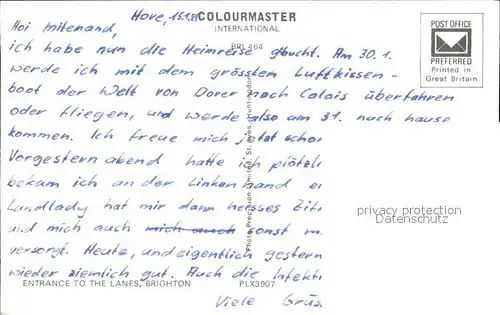 Hove, 15.1.81
COLOURMASTER
INTERNATIONAL
BPL 464
POST OFFICE
PREFERRED
Printed in
Great Britain
Hoi mitenand,
ich habe nun die Heimreise gebucht. Am 30.1.
werde ich mit dem grössten Luftkissen-
boot der Welt von Dover nach Calais überfahren
oder fliegen, und werde also am 31. nach hause
kommen. Ich freue mich jetzt schon
Vorgestern abend hatte ich plötzli
bekam ich an der linken Hand ei
Landlady hat mir dann heisses Zitr
und mich auch mich auch sonst
versorgt. Heute, und eigentlich gestern
wieder ziemlich gut. Auch die Infekti
Viele Grüs
ENTRANCE TO THE LANES, BRIGHTON
PLX3907
Photo Precision Limited, St. Ives, Huntingdon
privacy protection
Datenschutz